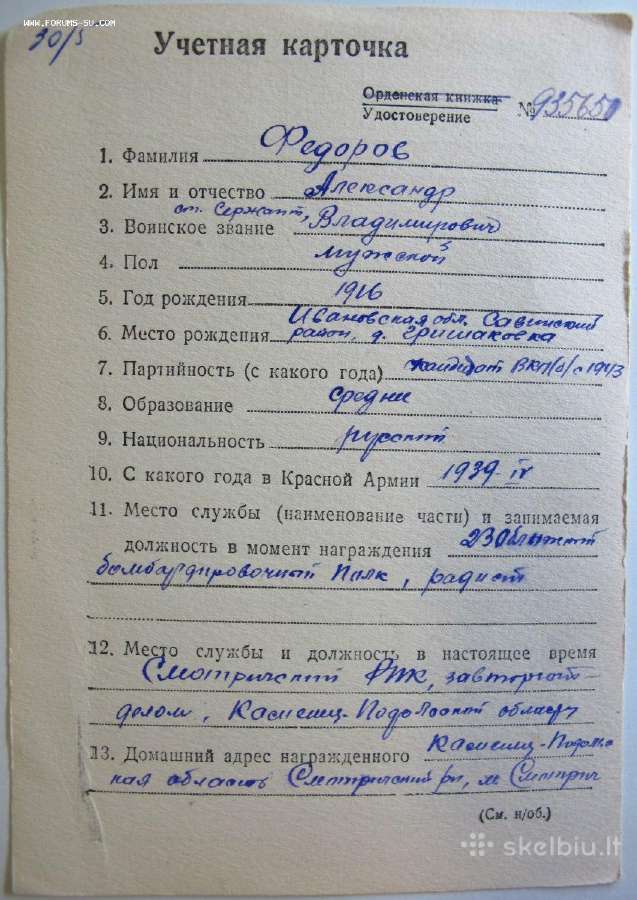 www.forums-su.com
30/5
Учетная карточка
Орденская книжка
Удостоверение № 935650
1. Фамилия Федоров
2. Имя и отчество Александр
ст. Сержант,
3. Воинское звание Владимирович
4. Пол мужской
5. Год рождения 1916
Ивановская обл. Савинский
6. Место рождения район, д. Гришаковка
7. Партийность (с какого года) кандидат ВКП/б/ с 1943
8. Образование средне
9. Национальность русский
10. С какого года в Красной Армии 1939 IV
11. Место службы (наименование части) и занимаемая
должность в момент награждения 230
бомбардировочный полк, радист
12. Место службы и должность в настоящее время
Смотрический завторгот
делом, Каменец-Подольской области
13. Домашний адрес награжденного Каменец-Подольс
кая область Смотрический м. Смотрич
(См. н/об.)
skelbiu.lt